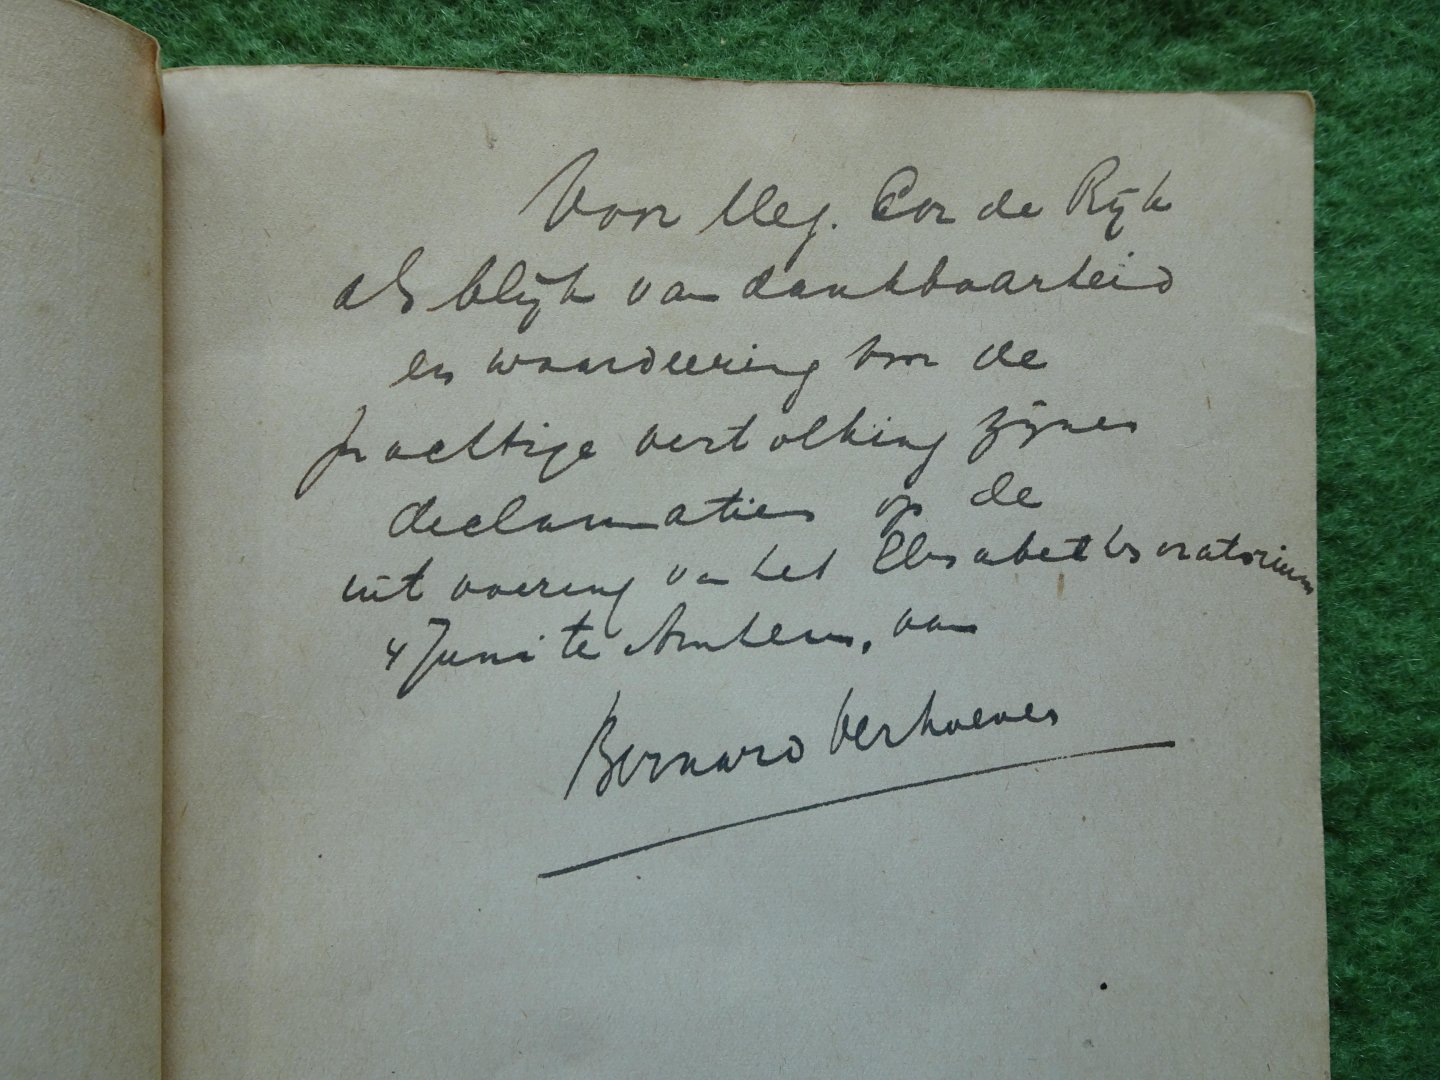 Voor Mej. Cor de Rijk
als blijk van dankbaarheid
en waardeering voor de
prachtige vertolking zijner
declamaties op de
uitvoering van het Elisabeth's oratorium
4 Juni te Arnhem, van
Bernard Verhoeven